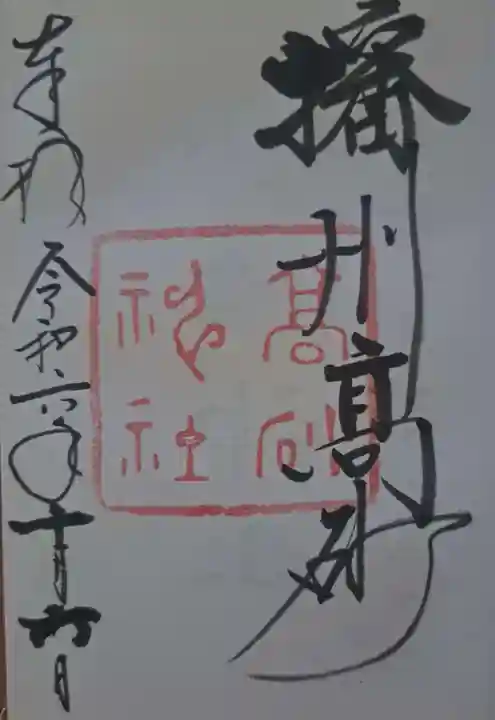 播州高砂
高砂
神社
奉拝 令和六年十月六日